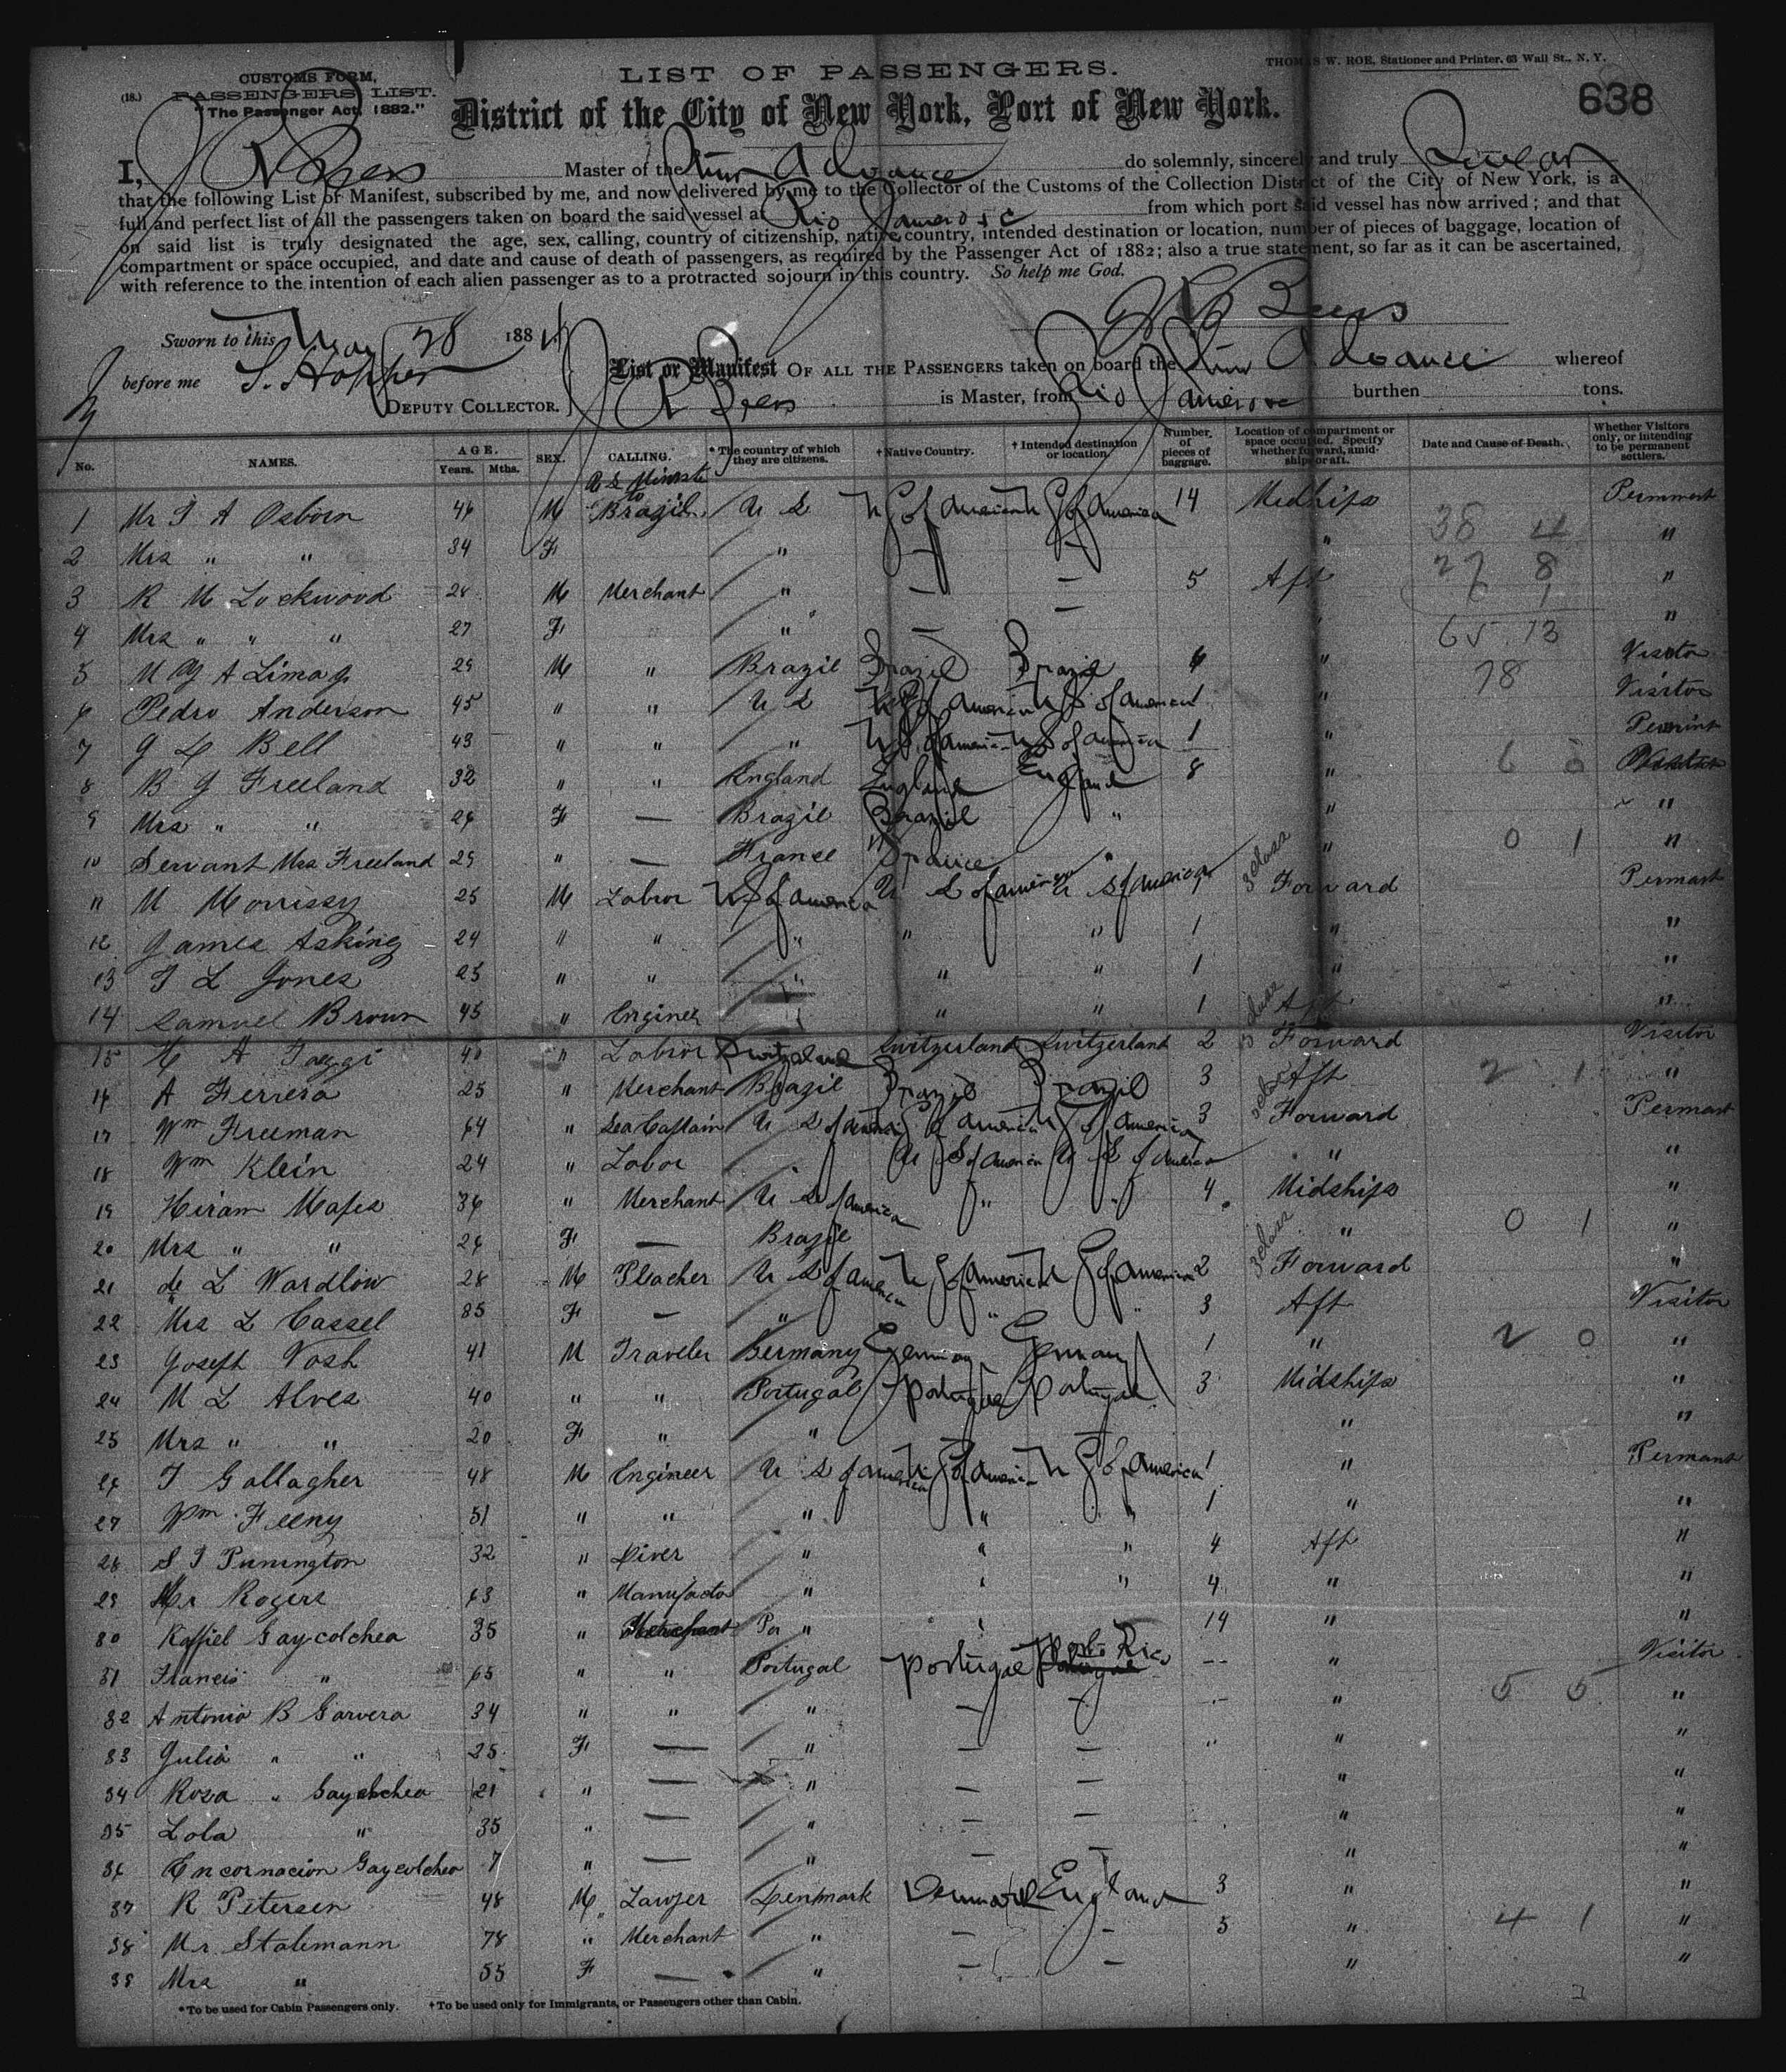 CUSTOMS FORM,
(18.) PASSENGERS LIST.
"The Passenger Act, 1882."
LIST OF PASSENGERS.
THOMAS W. ROE, Stationer and Printer, 63 Wall St., N. Y.
District of the City of New York, Port of New York.
638
I, J R Beers Master of the Stmr Advance do solemnly, sincerely and truly Swear
that the following List or Manifest, subscribed by me, and now delivered by me to the Collector of the Customs of the Collection District of the City of New York, is a
full and perfect list of all the passengers taken on board the said vessel at Rio Janero &c from which port said vessel has now arrived; and that
on said list is truly designated the age, sex, calling, country of citizenship, native country, intended destination or location, number of pieces of baggage, location of
compartment or space occupied, and date and cause of death of passengers, as required by the Passenger Act of 1882; also a true statement, so far as it can be ascertained,
with reference to the intention of each alien passenger as to a protracted sojourn in this country. So help me God.
J R Beers
Sworn to this May 28 188
before me S. Hopper
DEPUTY COLLECTOR.
List or Manifest OF ALL THE PASSENGERS taken on board the Stmr Advance whereof
J R Beers is Master, from Rio Janero &c burthen tons.
No. NAMES. AGE. Years. Mths. SEX. CALLING. * The country of which they are citizens. † Native Country. † Intended destination or location. Number of pieces of baggage. Location of compartment or space occupied. Specify whether forward, amidships or aft. Date and Cause of Death. Whether Visitors only, or intending to be permanent settlers.
1 Mr T A Osborn 46 M U S Minister to Brazil U S U S of America U S of America 14 Midships Permment
2 Mrs " " 34 F " — — " "
3 R M Lockwood 28 M Merchant " — — 5 Aft "
4 Mrs " " " 27 F " — — "
5 M 29 M " Brazil Brazil Brazil " Visitor
6 Pedro Anderson 45 " " U S U S of America U S of America 1 " Visitor
7 G L Bell 43 " " " U S of America U S of America 1 "
8 B G Freeland 32 " " England England England 8 "
9 Mrs " " 26 F — Brazil Brazil " " "
10 Servant Mrs Freeland 29 " — Franse France " " "
11 M Morrissy 25 M Labror U S of America U S of America U S of America 3 class Forward Permant
12 James Asking 24 " " " " " 1 " "
13 T L Jones 25 " " " " " 1 " "
14 Samuel Brown 45 " Enginer " " 1 Aft "
15 H A Taeggi 40 " Labror Switzerland Switzerland Switzerland 2 3 class Forward Visitor
16 A Ferrera 25 " Merchant Brazil Brazil Brazil 3 Aft "
17 Wm Freeman 64 " Sea Captain U S of America U S of America U S of America 3 3 class Forward Permant
18 Wm Klein 24 " Labor U S of America U S of America " "
19 Hiram Mapes 36 " Merchant U S of America " " 4 Midships "
20 Mrs " " 26 F — Brazil " "
21 L Wardlow 28 M Pleacher U S of America U S of America U S of America 2 3 class Forward "
22 Mrs L Cassel 35 F — " " " 3 Aft Visitor
23 Joseph Vosh 41 M Traveler Germany Germany Germany 1 " "
24 M L Alves 40 " " Portugal Portugal Portugal 3 Midships "
25 Mrs " " 20 F " " " "
26 T Gallagher 48 M Engineer U S of America U S of America U S of America 1 " Permant
27 Wm Feeny 51 " " " " " 1 " "
28 S T Punington 32 " Diver " " " 4 Aft "
29 Mr Rogers 63 " Manufacto " " " 4 " "
30 Raffiel Gaycolchea 35 " Merchant Por " " Porto Rico 14 " "
31 Francis " 65 " " Portugal Portugal Portugal " Visitor
32 Antonio B Garvera 34 " " " — — " "
33 Julia " " 25 F — " — — " "
34 Rosa " Gaycolchea 21 " — " — — " "
35 Lola " 35 " — " — — " "
36 Encornacion Gaycolchea 7 " — " — — " "
37 R Petersen 48 M Lawyer Denmark Denmark England 3 " "
38 Mr Stalemann 78 " Merchant " — — 5 " "
39 Mrs " 55 F — " — — " "
38 4
27 8
65 13
78
0 1
2 1
0 1
2 0
5 5
4 1
*To be used for Cabin Passengers only. †To be used only for Immigrants, or Passengers other than Cabin.